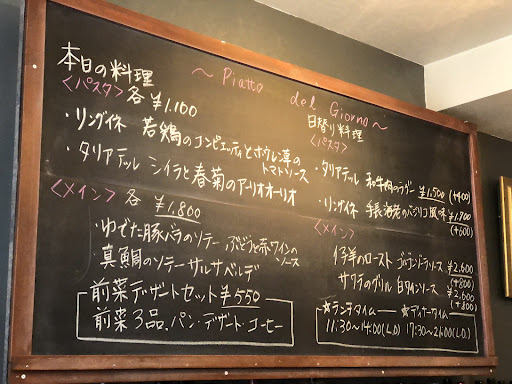 本日の料理
〈パスタ〉各 ¥1,100
・リングイネ 若鶏のコンピエッティとホウレン草の
トマトソース
・タリアテッレ シイラと春菊のアーリオオーリオ
〈メイン〉 各 ¥1,800
・ゆでた豚バラのソテー ぶどうと赤ワインの
ソース
・真鯛のソテー サルサベルデ
前菜デザートセット ¥550
前菜3品、パン・デザート コーヒー
～ Piatto del Giorno ～
日替り料理
〈パスタ〉
・タリアテッレ 和牛肉のラグー ¥1,500 (+400)
・リングイネ 手長海老のバジリコ風味 ¥1,700
(+600)
〈メイン〉
仔羊のロースト ゴルゴンゾーラソース ¥2,600
(+800)
サワラのグリル 白ワインソース ¥2,600
(+800)
★ランチタイム ★ディナータイム
11:30~14:00(L.O.) 17:30~21:00(L.O.)